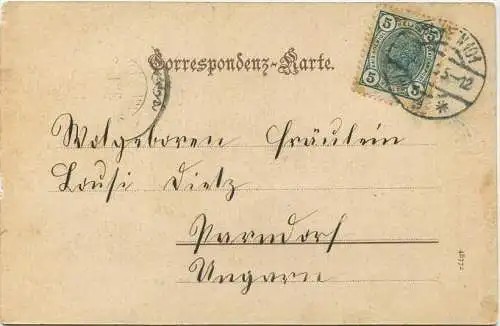 Correspondenz-Karte.
5 5
5 5
WIEN
Wolgeboren Fräulein
Lousi Dietz
Parndorf
Ungarn